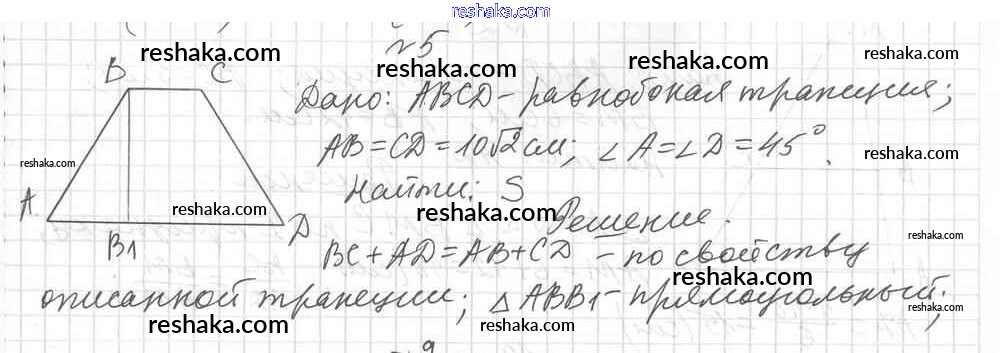 reshaka.com
№5
reshaka.com reshaka.com
B C
Дано: ABCD - равнобокая трапеция;
reshaka.com
AB = CD = 10√2 см; ∠A = ∠D = 45°.
reshaka.com reshaka.com
Найти: S
A reshaka.com reshaka.com
Решение.
B1 D
reshaka.com
BC + AD = AB + CD - по свойству
reshaka.com
описанной трапеции; △ABB1 - прямоугольный;
reshaka.com reshaka.com reshaka.com